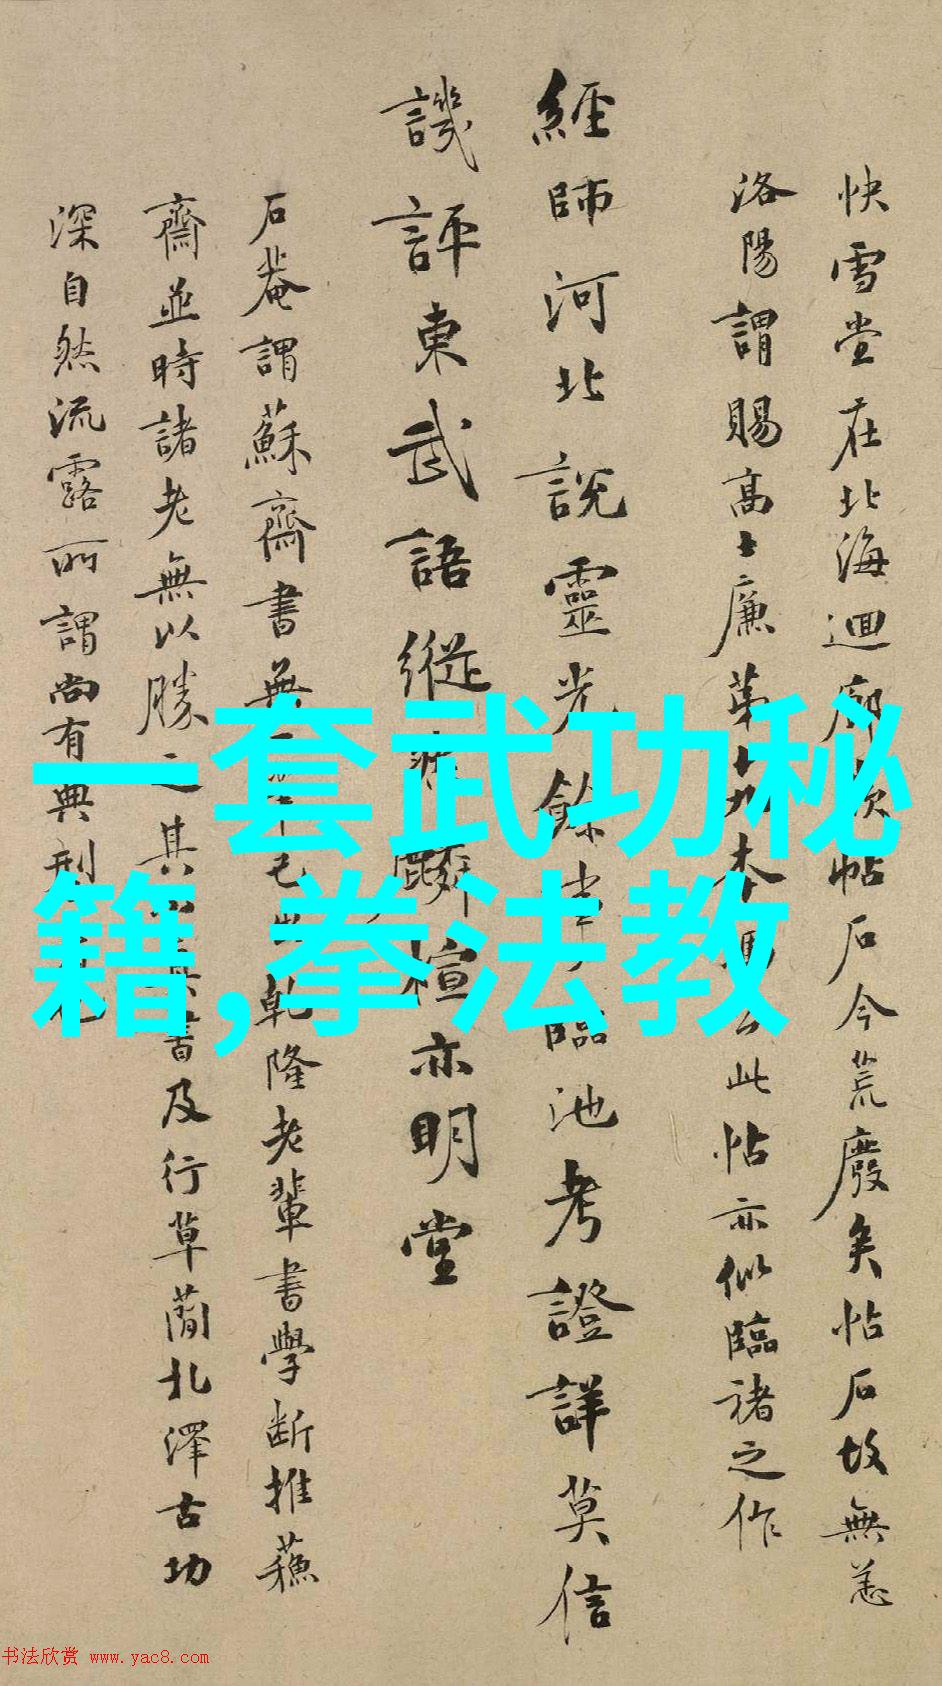 快雪堂在北海迴廊嵌帖石今荒廢矣帖石故無恙
洛陽謂賜高士廉第十九本馬公此帖亦似臨褚之作
經師河北説靈光餘事臨池考證詳莫信
譏評東武語縱橫麟楦亦明堂
石菴謂蘇齋書無一筆
乾隆老輩書學斷推蘇
齋並時諸老無以勝之其
書及行草蕳北澤古功
深自然流露所謂尚有典刑
一套武功秘
籍,拳法教
书法欣赏 www.yac8.com